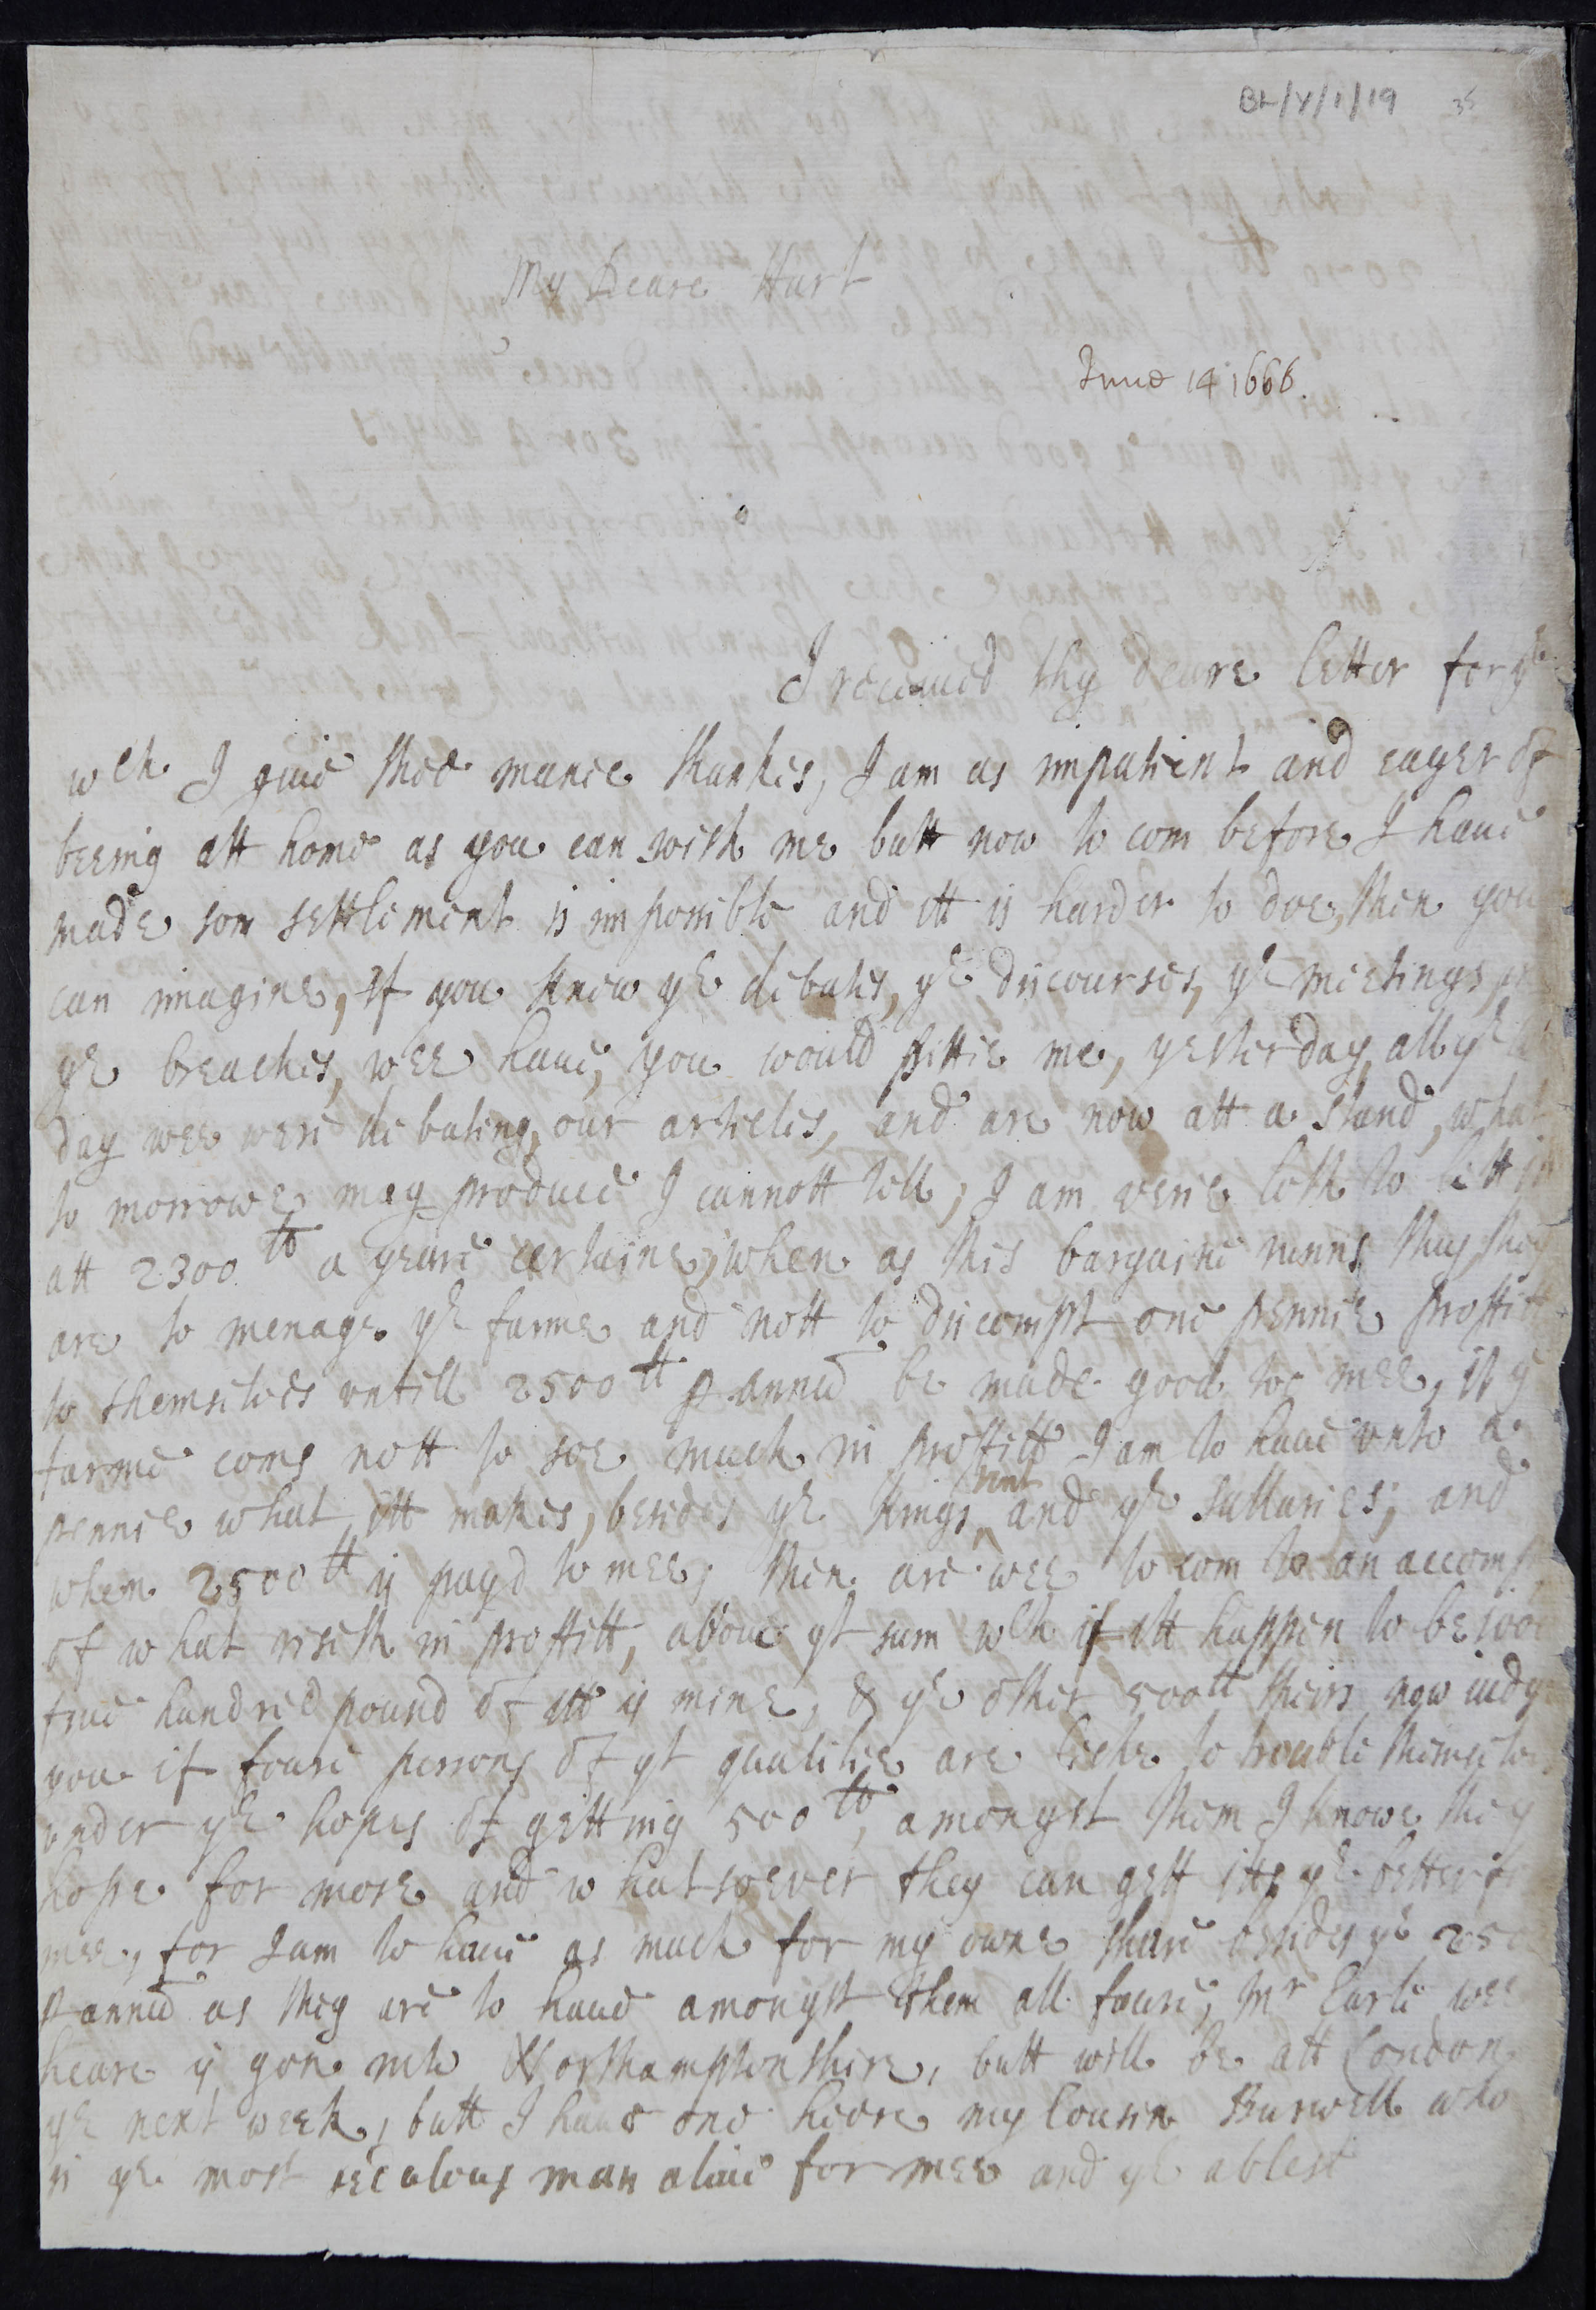 BL/Y/1/19 35
My Deare Hart
June 14 1666.
I receiued thy deare letter for ye
wch I giue thee manie thankes, I am as impatient and eager of
beeing att home as you can wish me butt now to com before I haue
made som settlement is impossible and itt is harder to doe, then you
can imagine, If you knew ye debates, ye discourses, ye meetings,
ye breaches, wee haue, you would pittie me, yesterday all ye
day wee were debating our articles, and are now att a stand, what
to morrowe may produce I cannott tell, I am verie loth to lett it
att 2300 tt a yeare certaine, when as this bargaine runns thus, they
are to menage ye farme and nott to discompt one pennie proffitt
to themselues vntill 2500 tt p annū be made good to mee, if ye
farme coms nott to soe much in proffitt I am to haue vnto a
pennie what itt makes, besides ye kings rent and ye sallaries; and
when 2500 tt is payd to mee, then are wee to com to an accompt
of what riseth in proffitt, aboue yt sum wch if itt happen to be 1000
fiue hundred pound of itt is mine, & ye other 500tt theirs now iudge
you if foure persons of yt qualitie are like to trouble themselues
vnder ye hopes of getting 500 tt, amongst them I knowe they
hope for more and whatsoever they can gett itts ye better for
mee, for I am to haue as much for my owne share besides ye 2500
p annū as they are to haue amongst them all foure; Mr Earle wee
heare is gon into Northamptonshire, butt will be att London
ye next week, butt I haue one heere my Cousin Burwell who
is ye most zealous man aliue for mee and ye ablest